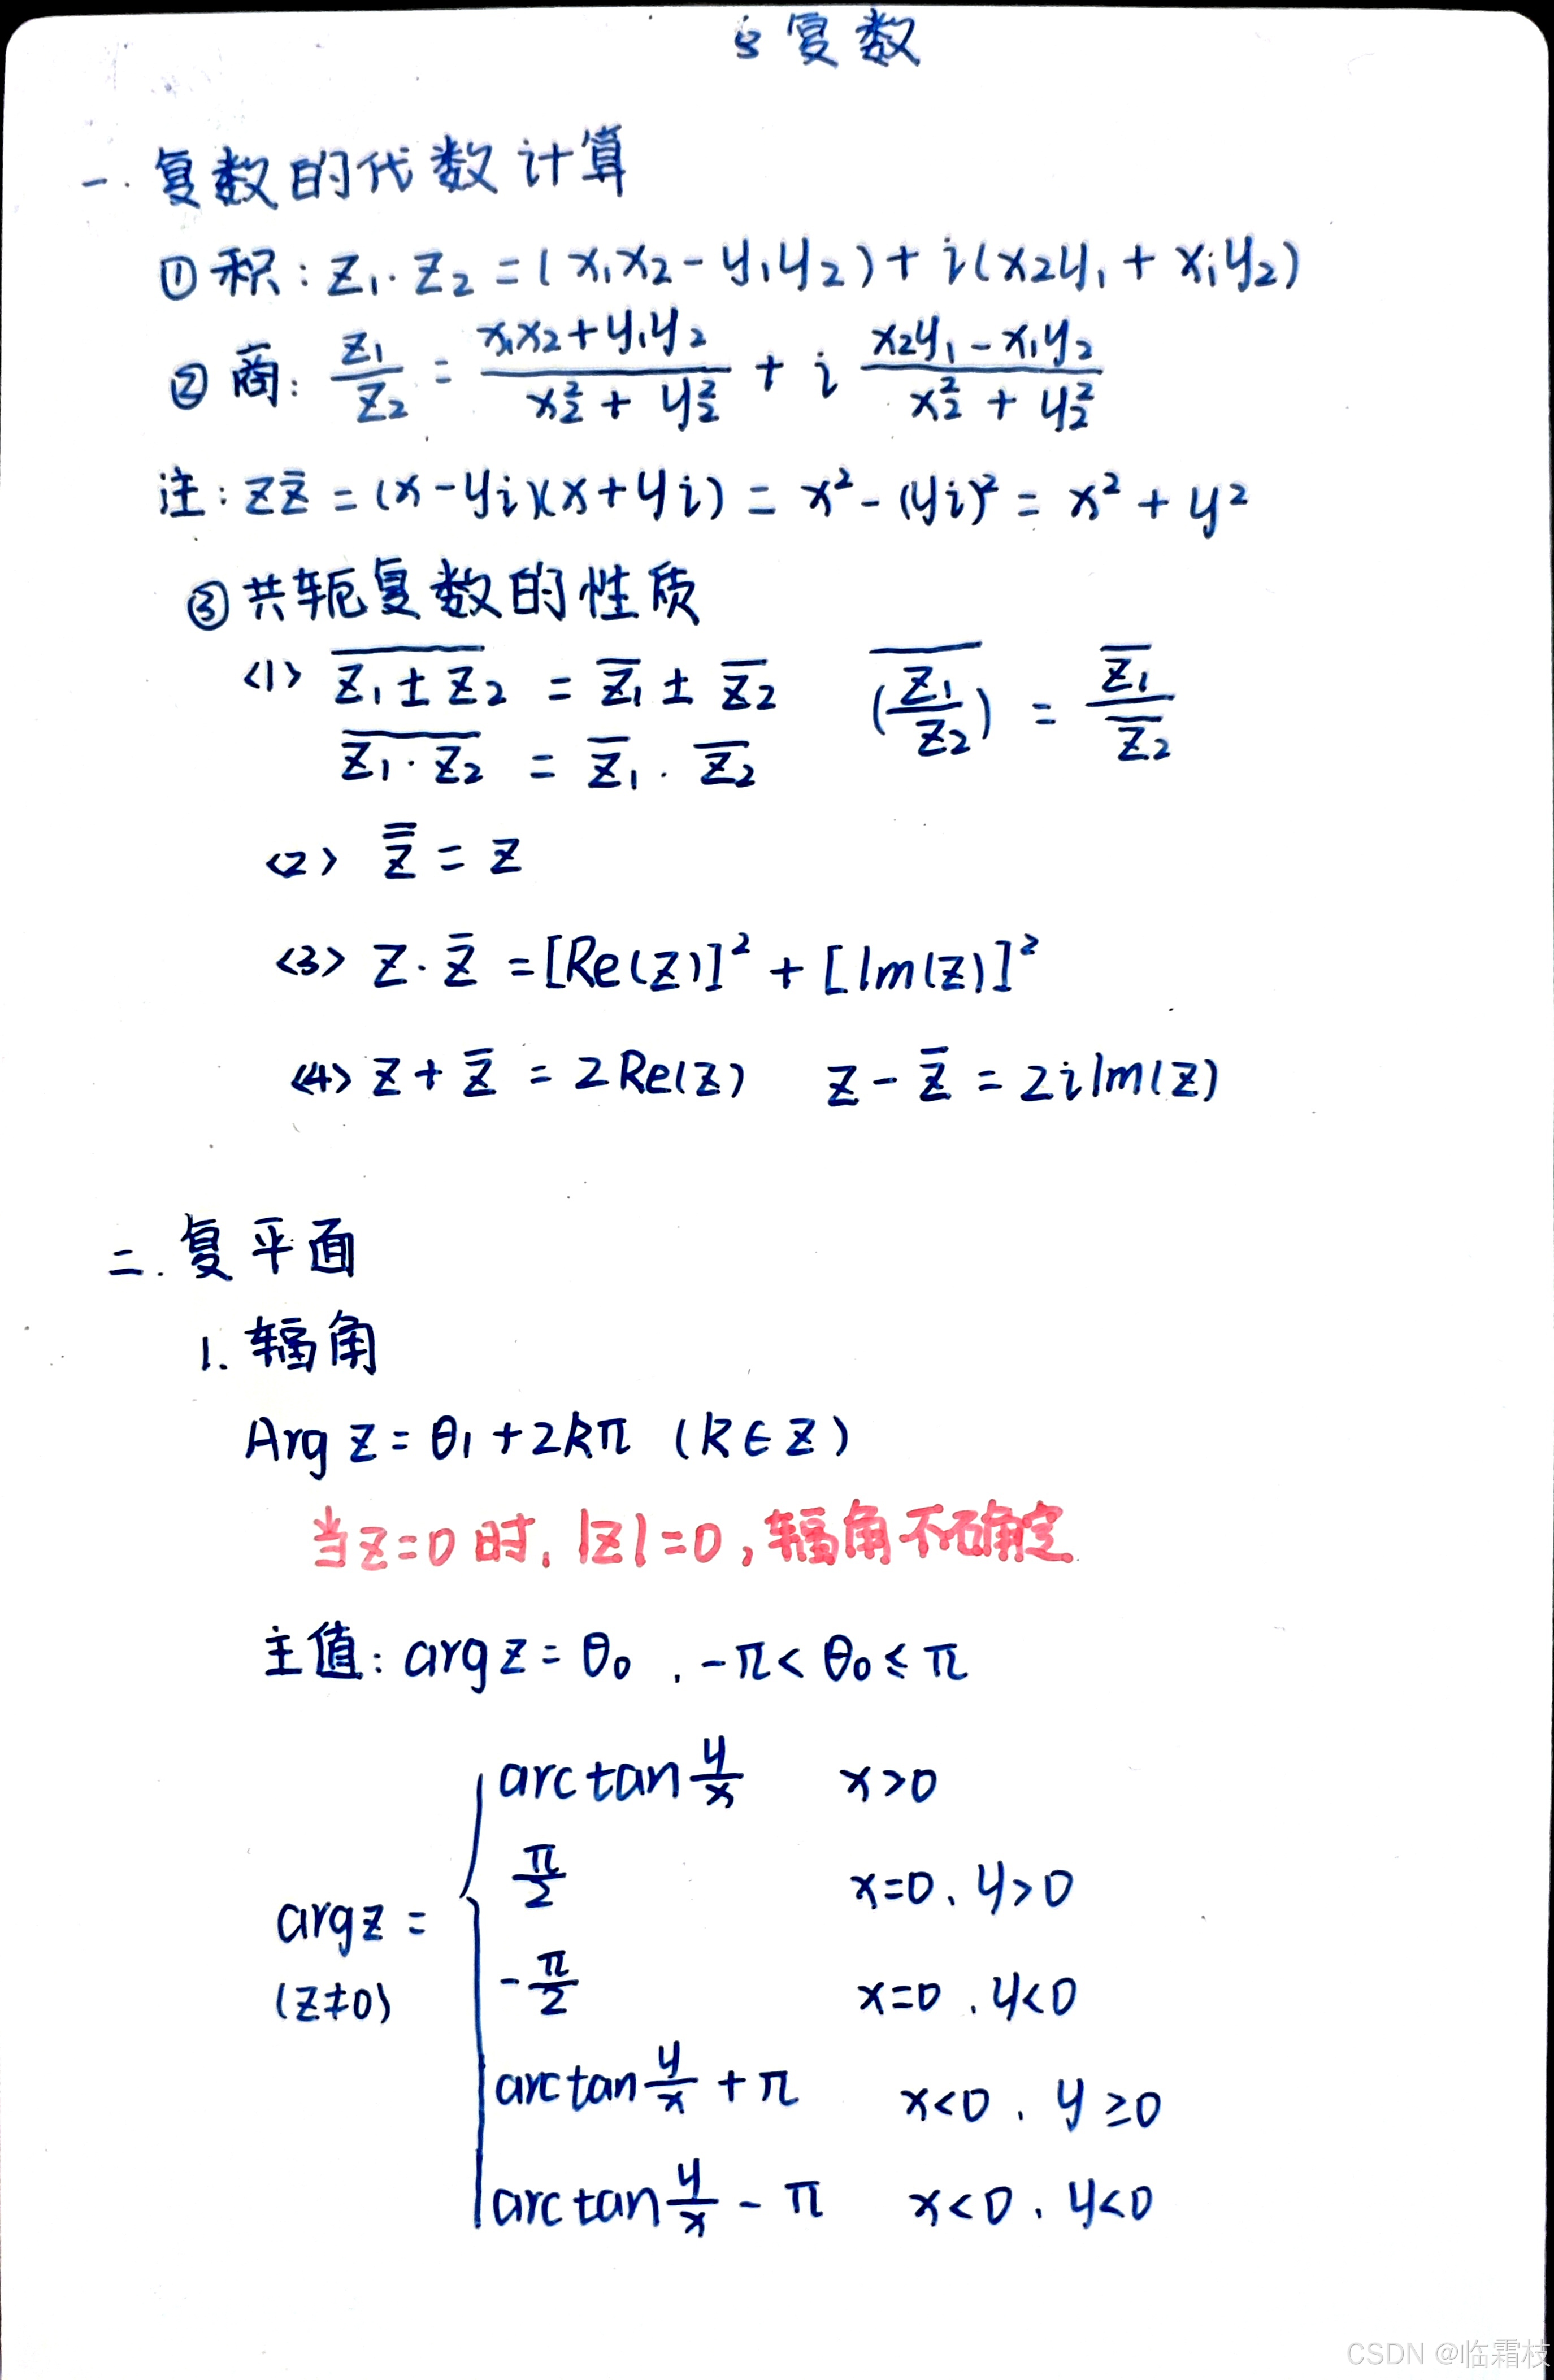 § 复数
一. 复数的代数计算
① 积: z₁·z₂ = (x₁x₂ - y₁y₂) + i(x₂y₁ + x₁y₂)
② 商: z₁/z₂ = (x₁x₂ + y₁y₂)/(x₂² + y₂²) + i (x₂y₁ - x₁y₂)/(x₂² + y₂²)
注: zz̄ = (x - yi)(x + yi) = x² - (yi)² = x² + y²
③ 共轭复数的性质
<1> \overline{z₁ ± z₂} = \overline{z₁} ± \overline{z₂} \overline{(z₁/z₂)} = \overline{z₁}/\overline{z₂}
\overline{z₁·z₂} = \overline{z₁}·\overline{z₂}
<2> \overline{\overline{z}} = z
<3> z·z̄ = [Re(z)]² + [Im(z)]²
<4> z + z̄ = 2Re(z) z - z̄ = 2iIm(z)
二. 复平面
1. 辐角
Arg z = θ₁ + 2kπ (k∈Z)
当z=0时, |z|=0, 辐角不确定
主值: arg z = θ₀ , -π < θ₀ ≤ π
arctan y/x x>0
π/2 x=0, y>0
arg z =
-π/2 x=0, y<0
(z≠0)
arctan y/x + π x<0, y≥0
arctan y/x - π x<0, y<0
CSDN @临霜枝